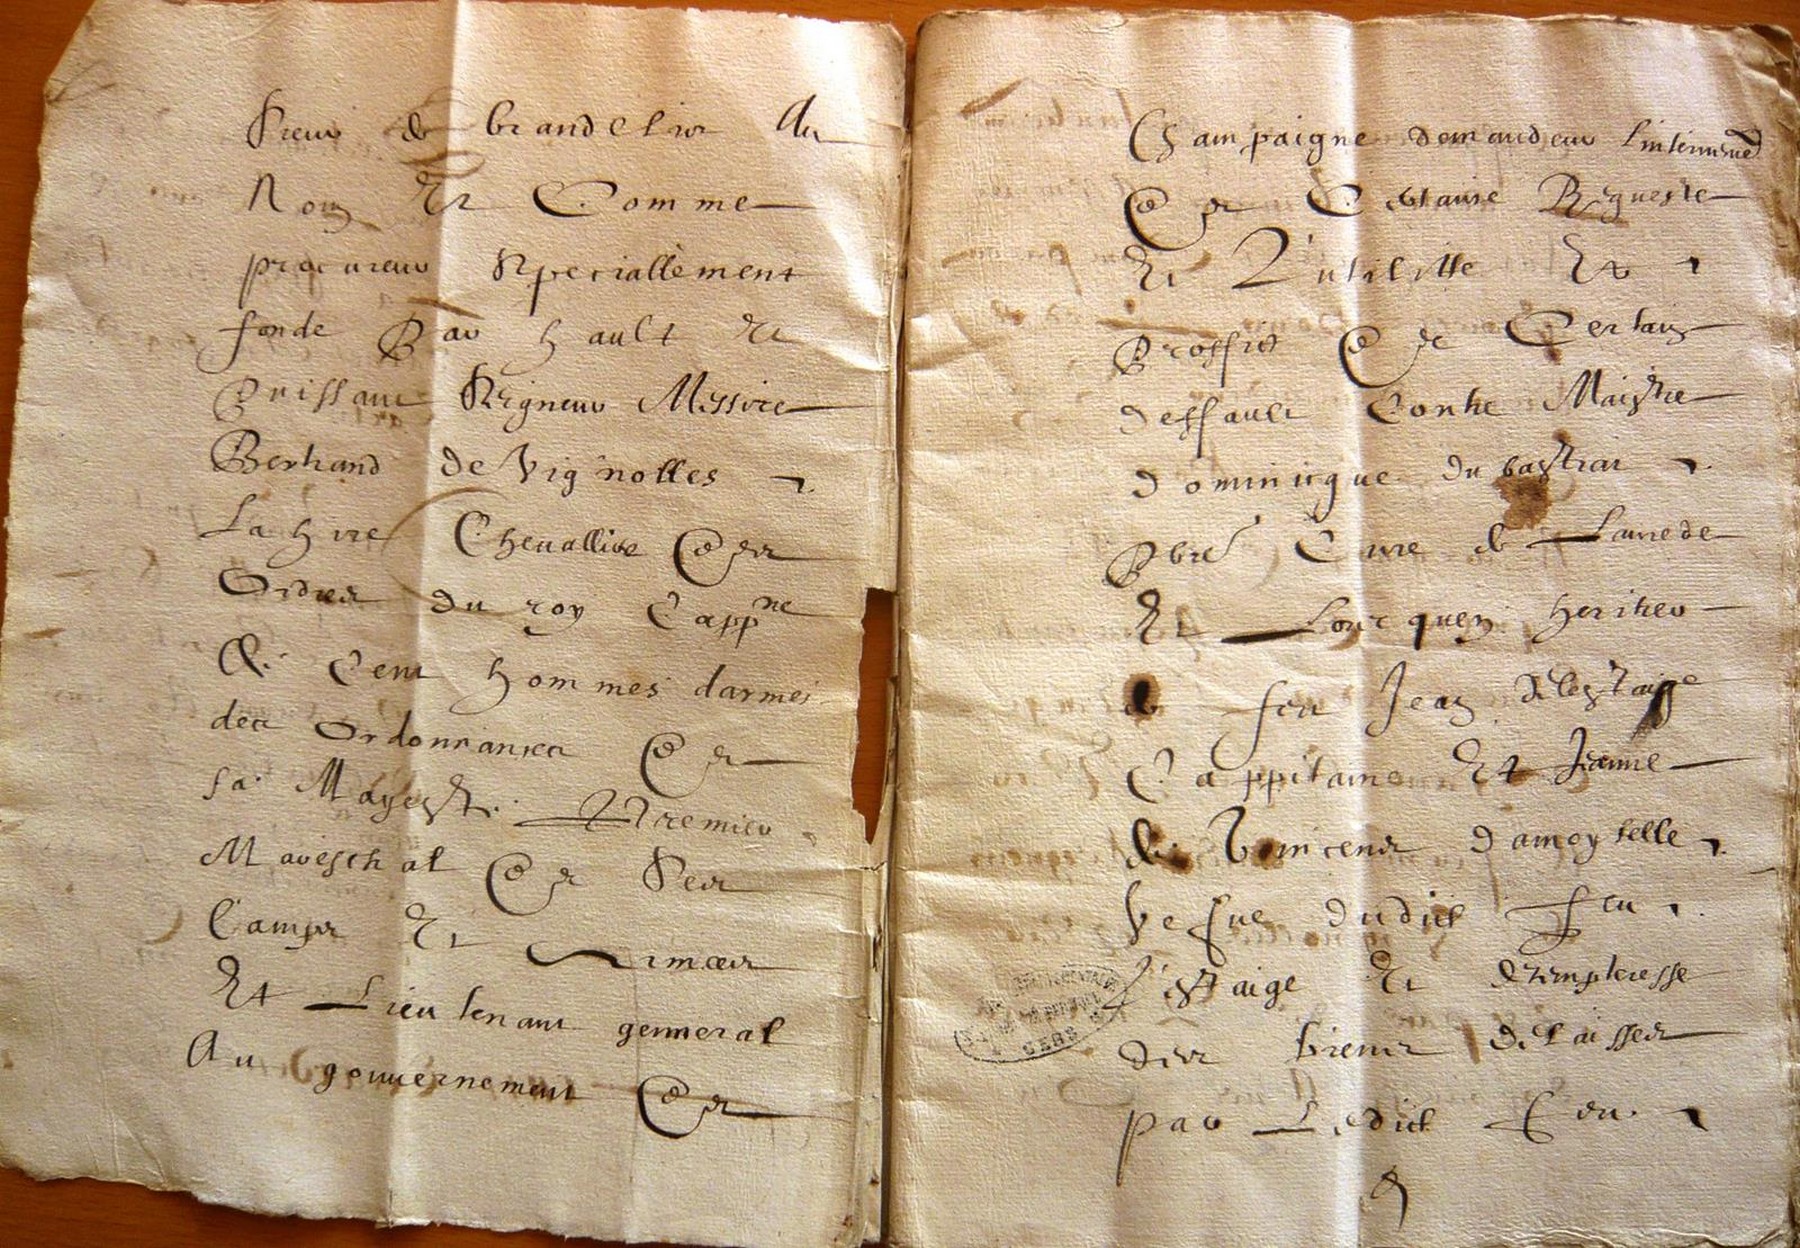 Sieur de brandelier Au
Nom Et Comme
procureur Speciallement
fonde Par hault Et
Puissant Seigneur Messire
Bertrand de Vignolles
La hire Chevallier des
Ordres du roy Cappne
De Cent hommes darmes
des Ordonnances de
sa Mayesté Premier
Mareschal de Ses
Camps Et
Et Lieutenant genneral
Au gouvernement de
Champaigne demandeur
de Certaine Requeste
Et L'utilitte Et
Proffict de Certain
deffault Contre Maistre
dominicque du bastiar
Pbre Cure de Lanede
Et heritier
de feu Jean delestaige
Cappitaine Et Jeanne
de damoyselle
Vefve dudict feu
Lestaige Et
des biens delaisses
par Ledict feu
GERS